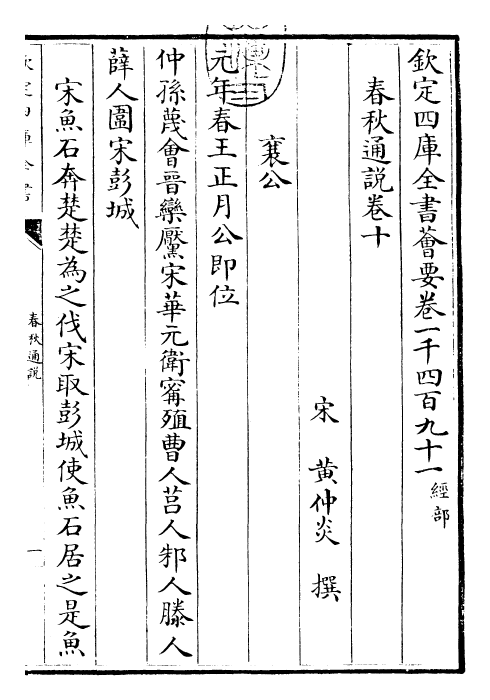 欽定四庫全書薈要卷一千四百九十一 經部
春秋通說卷十
宋 黄仲炎 撰
襄公
元年春王正月公即位
仲孫蔑會晉欒黶宋華元衛甯殖曹人莒人邾人滕人
薛人圍宋彭城
宋魚石奔楚楚為之伐宋取彭城使魚石居之是魚
春秋通說
一